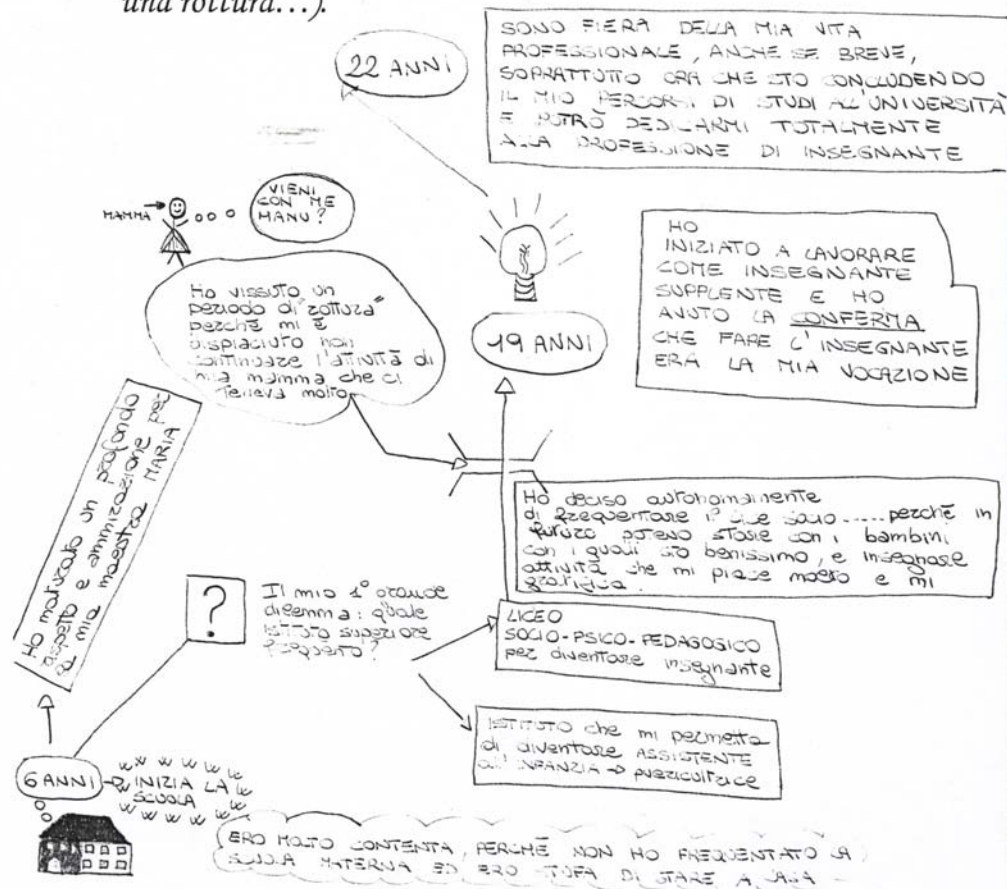 una rottura…).
22 ANNI
SONO FIERA DELLA MIA VITA
PROFESSIONALE, ANCHE SE BREVE,
SOPRATTUTTO ORA CHE STO CONCLUDENDO
IL MIO PERCORSO DI STUDI ALL'UNIVERSITÀ
E POTRÒ DEDICARMI TOTALMENTE
ALLA PROFESSIONE DI INSEGNANTE
MAMMA
VIENI
CON ME
MANU?
Ho vissuto un
periodo di "rottura"
perchè mi è
dispiaciuto non
continuare l'attività di
mia mamma che ci
teneva molto
19 ANNI
HO
INIZIATO A LAVORARE
COME INSEGNANTE
SUPPLENTE E HO
AVUTO LA CONFERMA
CHE FARE L'INSEGNANTE
ERA LA MIA VOCAZIONE
Ho maturato un profondo
rispetto e ammirazione per
la mia maestra MARIA
Ho deciso autonomamente
di frequentare il socio.....perchè in
futuro potevo stare con i bambini
con i quali sto benissimo, e insegnare
attività che mi piace molto e mi
gratifica.
?
Il mio 1° grande
dilemma: quale
istituto superiore
frequento?
LICEO
SOCIO-PSICO-PEDAGOGICO
per diventare insegnante
ISTITUTO che mi permetta
di diventare ASSISTENTE
all'INFANZIA → puericultrice
6 ANNI
INIZIA LA
SCUOLA
W W W W W W
ERO MOLTO CONTENTA, PERCHÉ NON HO FREQUENTATO LA
SCUOLA MATERNA ED ERO STUFA DI STARE A CASA